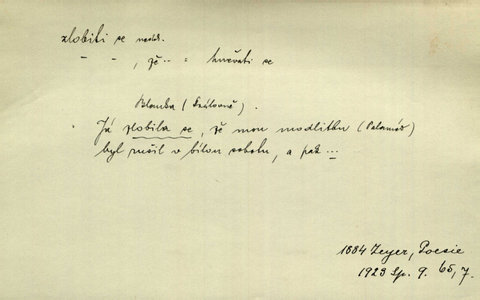 zlobiti se nedok.
– – , že ... = hněvati se
Blanka (Králově).
Já zlobila se, že mou modlitbu (Palamed)
byl rušil v bílou sobotu, a pak ...
1884 Zeyer, Poesie
1923 Sp. 9. 65, 7.